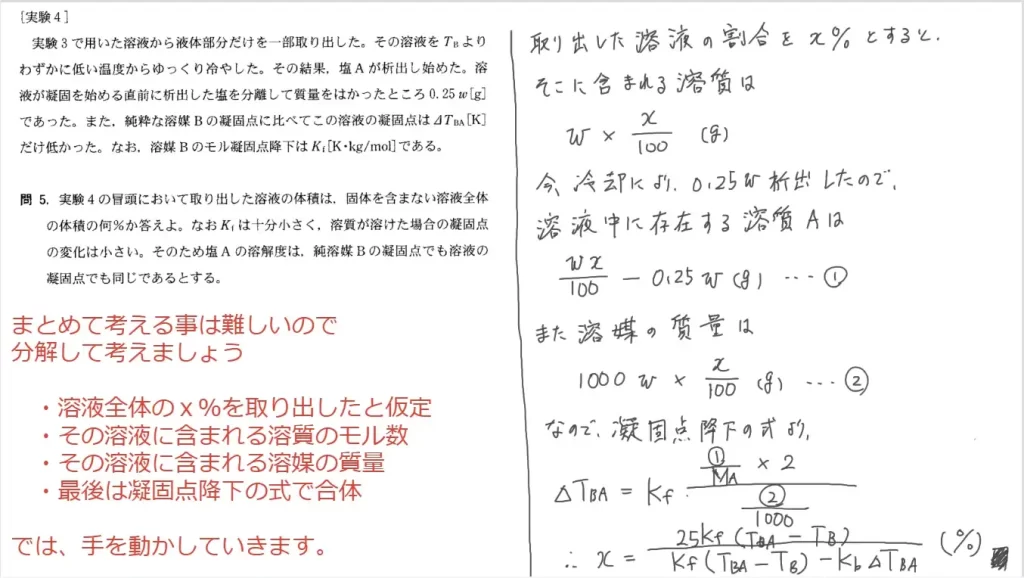 [実験4]
実験3で用いた溶液から液体部分だけを一部取り出した。その溶液をTBより
わずかに低い温度からゆっくり冷やした。その結果,塩Aが析出し始めた。溶
液が凝固を始める直前に析出した塩を分離して質量をはかったところ0.25w[g]
であった。また,純粋な溶媒Bの凝固点に比べてこの溶液の凝固点はΔTBA[K]
だけ低かった。なお,溶媒Bのモル凝固点降下はKf[K・kg/mol]である。
問 5. 実験4の冒頭において取り出した溶液の体積は,固体を含まない溶液全体
の体積の何%か答えよ。なおKfは十分小さく,溶質が溶けた場合の凝固点
の変化は小さい。そのため塩Aの溶解度は,純溶媒Bの凝固点でも溶液の
凝固点でも同じであるとする。
まとめて考える事は難しいので
分解して考えましょう
・溶液全体のx%を取り出したと仮定
・その溶液に含まれる溶質のモル数
・その溶液に含まれる溶媒の質量
・最後は凝固点降下の式で合体
では、手を動かしていきます。
取り出した溶液の割合をx%とすると、
そこに含まれる溶質は
w × x/100 (g)
今、冷却により、0.25w析出したので、
溶液中に存在する溶質Aは
wx/100 − 0.25w (g) … ①
また溶媒の質量は
1000w × x/100 (g) … ②
なので、凝固点降下の式より、
ΔTBA = Kf・(①/MA × 2)/(②/1000)
∴ x = 25Kf(TBA − TB)/(Kf(TBA − TB) − KbΔTBA) (%)